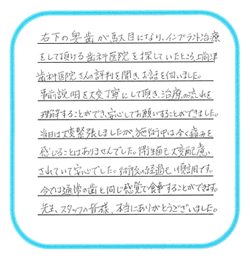 右下の奥歯が駄目になり、インプラント治療
をして頂ける歯科医院を探していたところ、
歯科医院さんの評判を聞き、お話を伺いました。
事前説明を大変丁寧にして頂き、治療の流れを
理解することができ、安心してお願いすることができました。
当日は大変緊張しましたが、施術中は全く痛みを
感じることはありませんでした。衛生面も大変配慮
されていて安心でした。術後の経過も順調です。
今では通常の歯と同じ感覚で食事することができます。
先生、スタッフの皆様、本当にありがとうございました。